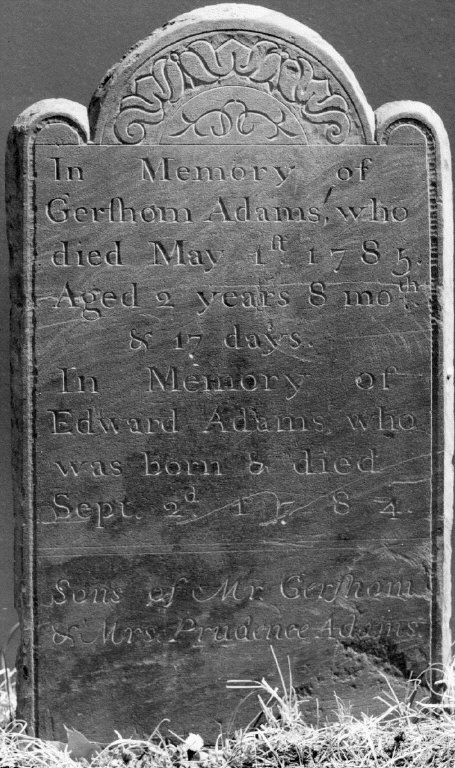 In Memory of
Gerſhom Adams, who
died May 1ſt 1785.
Aged 2 years 8 moth.
& 17 days.
In Memory of
Edward Adams, who
was born & died
Sept. 2d 1784.
Sons of Mr. Gerſhom
& Mrs. Prudence Adams.